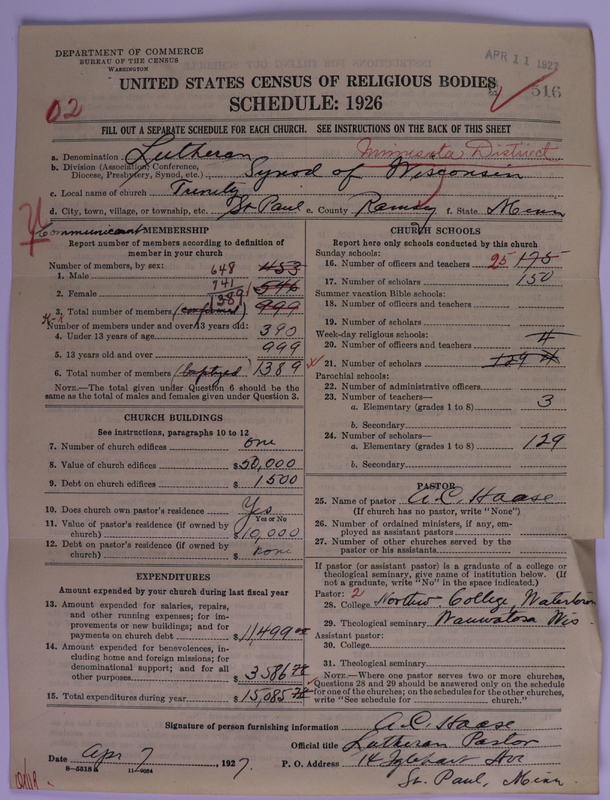 DEPARTMENT OF COMMERCE
BUREAU OF THE CENSUS
WASHINGTON
APR 11 1927
UNITED STATES CENSUS OF RELIGIOUS BODIES
516
SCHEDULE: 1926
02
FILL OUT A SEPARATE SCHEDULE FOR EACH CHURCH. SEE INSTRUCTIONS ON THE BACK OF THIS SHEET
a. Denomination Lutheran Minnesota District
b. Division (Association, Conference, Diocese, Presbytery, Synod, etc.) Synod of Wisconsin
c. Local name of church Trinity
d. City, town, village, or township, etc. St Paul e. County Ramsey f. State Minn
Communicant MEMBERSHIP
Report number of members according to definition of
member in your church
Number of members, by sex:
1. Male 648 453
2. Female 741 546
3. Total number of members (confirmed) 1389 999
Number of members under and over 13 years old:
4. Under 13 years of age 390
5. 13 years old and over 999
6. Total number of members (baptized) 1389
NOTE.—The total given under Question 6 should be the
same as the total of males and females given under Question 3.
CHURCH BUILDINGS
See instructions, paragraphs 10 to 12
7. Number of church edifices one
8. Value of church edifices $50,000
9. Debt on church edifices $1500
10. Does church own pastor's residence Yes
Yes or No
11. Value of pastor's residence (if owned by
church) $10,000
12. Debt on pastor's residence (if owned by
church) $ none
EXPENDITURES
Amount expended by your church during last fiscal year
13. Amount expended for salaries, repairs,
and other running expenses; for im-
provements or new buildings; and for
payments on church debt $11,499.00
14. Amount expended for benevolences, in-
cluding home and foreign missions; for
denominational support; and for all
other purposes $3586.78
15. Total expenditures during year $15,085.78
CHURCH SCHOOLS
Report here only schools conducted by this church
Sunday schools:
16. Number of officers and teachers 25 175
17. Number of scholars 150
Summer vacation Bible schools:
18. Number of officers and teachers
19. Number of scholars
Week-day religious schools:
20. Number of officers and teachers 4
21. Number of scholars 129
Parochial schools:
22. Number of administrative officers
23. Number of teachers—
a. Elementary (grades 1 to 8) 3
b. Secondary
24. Number of scholars—
a. Elementary (grades 1 to 8) 129
b. Secondary
PASTOR
25. Name of pastor A. C. Haase
(If church has no pastor, write "None")
26. Number of ordained ministers, if any, em-
ployed as assistant pastors
27. Number of other churches served by the
pastor or his assistants
If pastor (or assistant pastor) is a graduate of a college or
theological seminary, give name of institution below. (If
not a graduate, write "No" in the space indicated.)
Pastor: 2
28. College Northw. College Watertown
29. Theological seminary Wauwatosa Wis
Assistant pastor:
30. College
31. Theological seminary
NOTE.—Where one pastor serves two or more churches,
Questions 28 and 29 should be answered only on the schedule
for one of the churches; on the schedules for the other churches,
write "See schedule for church."
Signature of person furnishing information A. C. Haase
Official title Lutheran Pastor
Date Apr 7 1927. P. O. Address 14 Iglehart Ave
8—5518a 11—9064
St. Paul, Minn.